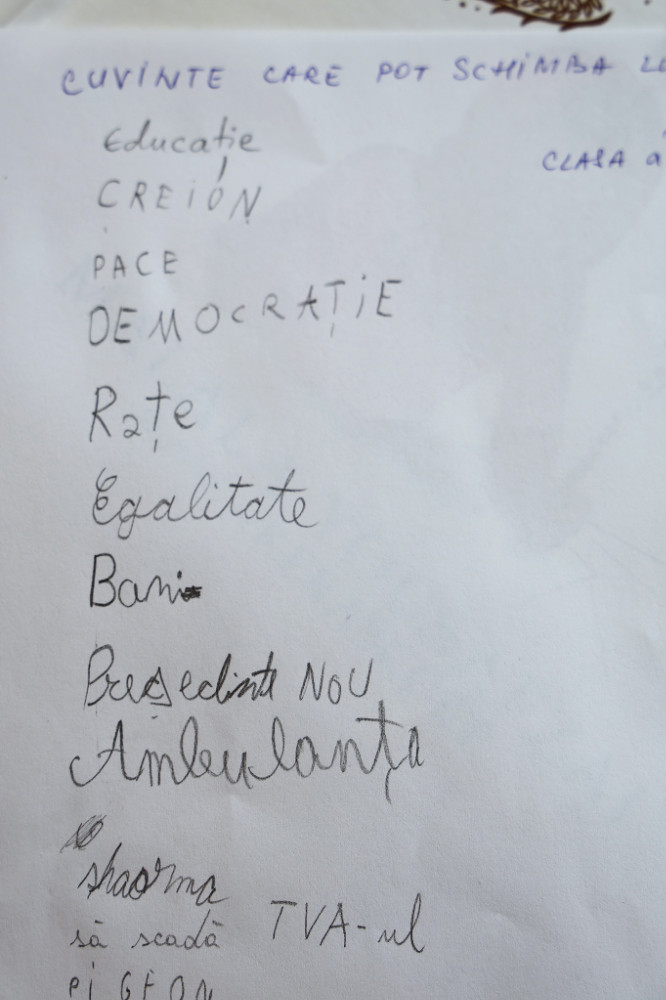 CUVINTE CARE POT SCHIMBA
CLASA a
Educație
CREION
PACE
DEMOCRAȚIE
Rațe
Egalitate
Bani
Președinte NOU
Ambulanța
shaorma
să scadă TVA-ul